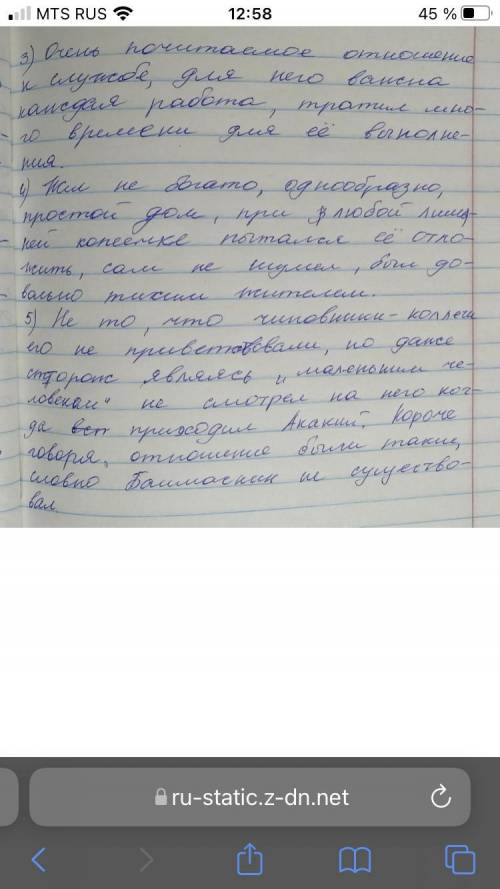 MTS RUS
12:58
45 %
3) Очень почитаемое отношение
к службе, для него важна
каждая работа, тратил мно-
го времени для её выполне-
ния.
4) Жил не богато, однообразно,
простой дом, при любой лиш-
ней копеечке пытался её отло-
жить, сам не шумел, был до-
вольно тихим жителем.
5) Не то, что чиновники-коллеги
его не приветствовали, но даже
сторож являясь "маленьким че-
ловеком" не смотрел на него ког-
да приходил Акакий. Короче
говоря, отношение были такие,
словно Башмачкин не существо-
вал.
ru-static.z-dn.net